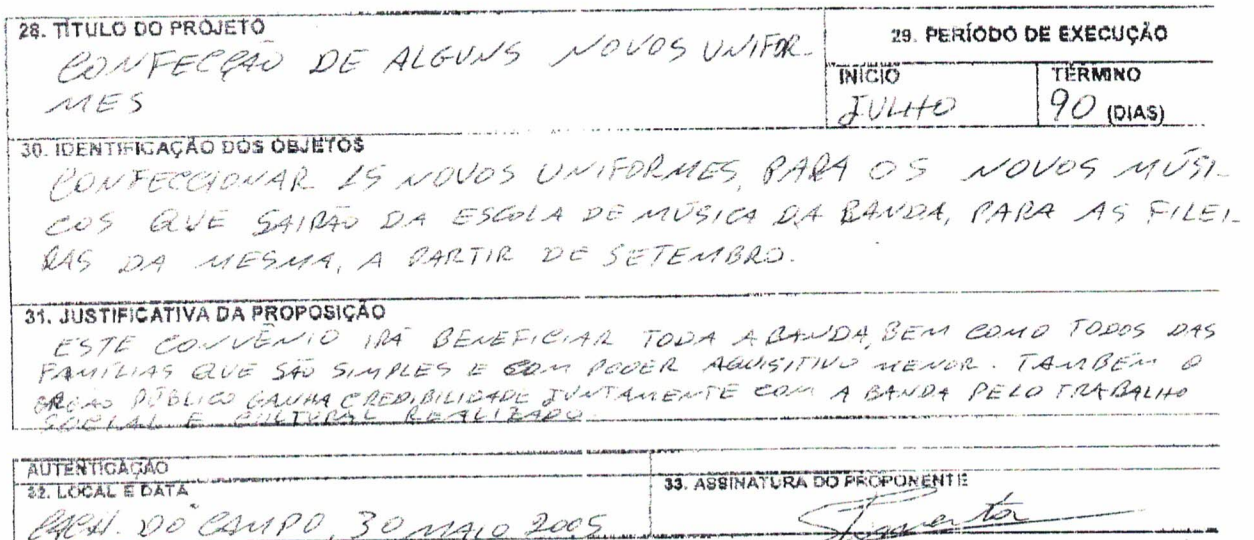 28. TÍTULO DO PROJETO
CONFECÇÃO DE ALGUNS NOVOS UNIFOR-
MES
29. PERÍODO DE EXECUÇÃO
INÍCIO
JULHO
TÉRMINO
90 (DIAS)
30. IDENTIFICAÇÃO DOS OBJETOS
CONFECCIONAR 15 NOVOS UNIFORMES, PARA OS NOVOS MÚSI-
COS QUE SAIRÃO DA ESCOLA DE MÚSICA DA BANDA, PARA AS FILEI-
RAS DA MESMA, A PARTIR DE SETEMBRO.
31. JUSTIFICATIVA DA PROPOSIÇÃO
ESTE CONVÊNIO IRÁ BENEFICIAR TODA A BANDA, BEM COMO TODOS DAS
FAMÍLIAS QUE SÃO SIMPLES E COM PODER AQUISITIVO MENOR. TAMBÉM O
ÓRGÃO PÚBLICO GANHA CREDIBILIDADE JUNTAMENTE COM A BANDA PELO TRABALHO
SOCIAL E CULTURAL REALIZADO.
AUTENTICAÇÃO
32. LOCAL E DATA
CACH. DO CAMPO, 30 MAIO 2005
33. ASSINATURA DO PROPONENTE